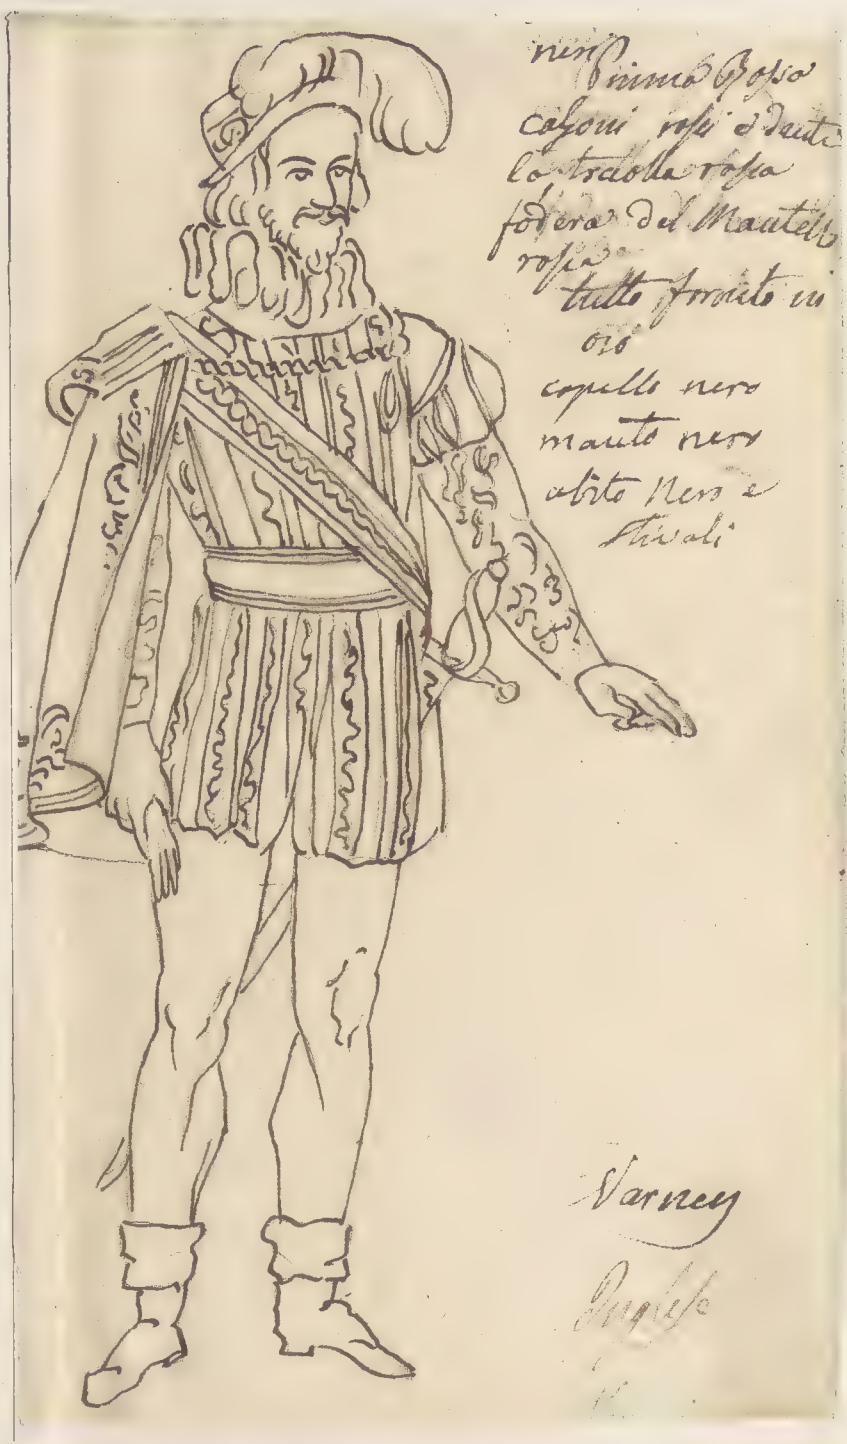 neri
Piuma Rossa
calzoni rossi e dauti
la tracolla rossa
fodera del Mantello
rossa
tutto fornito in
oro
capello nero
manto nero
abito Nero e
Stivali
Varney
Inglese